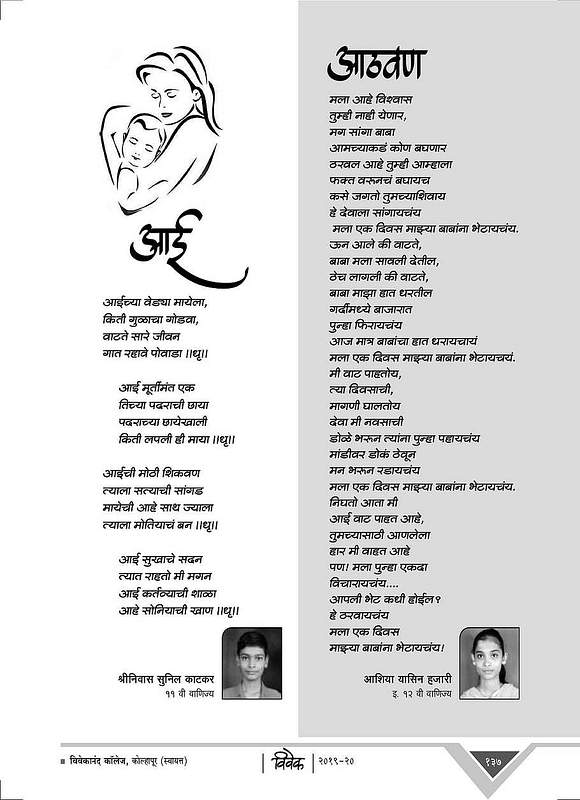 आई
आईच्या वेड्या मायेला,
किती गुळाचा गोडवा,
वाटते सारे जीवन
गात रहावे पोवाडा ।।धृ।।
आई मूर्तीमंत एक
तिच्या पदराची छाया
पदराच्या छायेखाली
किती लपली ही माया ।।धृ।।
आईची मोठी शिकवण
त्याला सत्याची सांगड
मायेची आहे साथ ज्याला
त्याला मोतियाचं बन ।।धृ।।
आई सुखाचे सदन
त्यात राहतो मी मगन
आई कर्तव्याची शाळा
आहे सोनियाची खाण ।।धृ।।
श्रीनिवास सुनिल काटकर
११ वी वाणिज्य
आठवण
मला आहे विश्वास
तुम्ही नाही येणार,
मग सांगा बाबा
आमच्याकडं कोण बघणार
ठरवल आहे तुम्ही आम्हाला
फक्त वरूनचं बघायच
कसे जगतो तुमच्याशिवाय
हे देवाला सांगायचंय
मला एक दिवस माझ्या बाबांना भेटायचंय.
ऊन आले की वाटते,
बाबा मला सावली देतील,
ठेच लागली की वाटते,
बाबा माझा हात धरतील
गर्दीमध्ये बाजारात
पुन्हा फिरायचंय
आज मात्र बाबांचा हात धरायचायं
मला एक दिवस माझ्या बाबांना भेटायचयं.
मी वाट पाहतोय,
त्या दिवसाची,
मागणी घालतोय
देवा मी नवसाची
डोळे भरून त्यांना पुन्हा पहायचंय
मांडीवर डोकं ठेवून
मन भरून रडायचंय
मला एक दिवस माझ्या बाबांना भेटायचंय.
निघतो आता मी
आई वाट पाहत आहे,
तुमच्यासाठी आणलेला
हार मी वाहत आहे
पण! मला पुन्हा एकदा
विचारायचंय....
आपली भेट कधी होईल?
हे ठरवायचंय
मला एक दिवस
माझ्या बाबांना भेटायचंय!
आशिया यासिन हजारी
इ. १२ वी वाणिज्य
विवेकानंद कॉलेज, कोल्हापूर (स्वायत्त)
विवेक
२०१९-२०
१३७